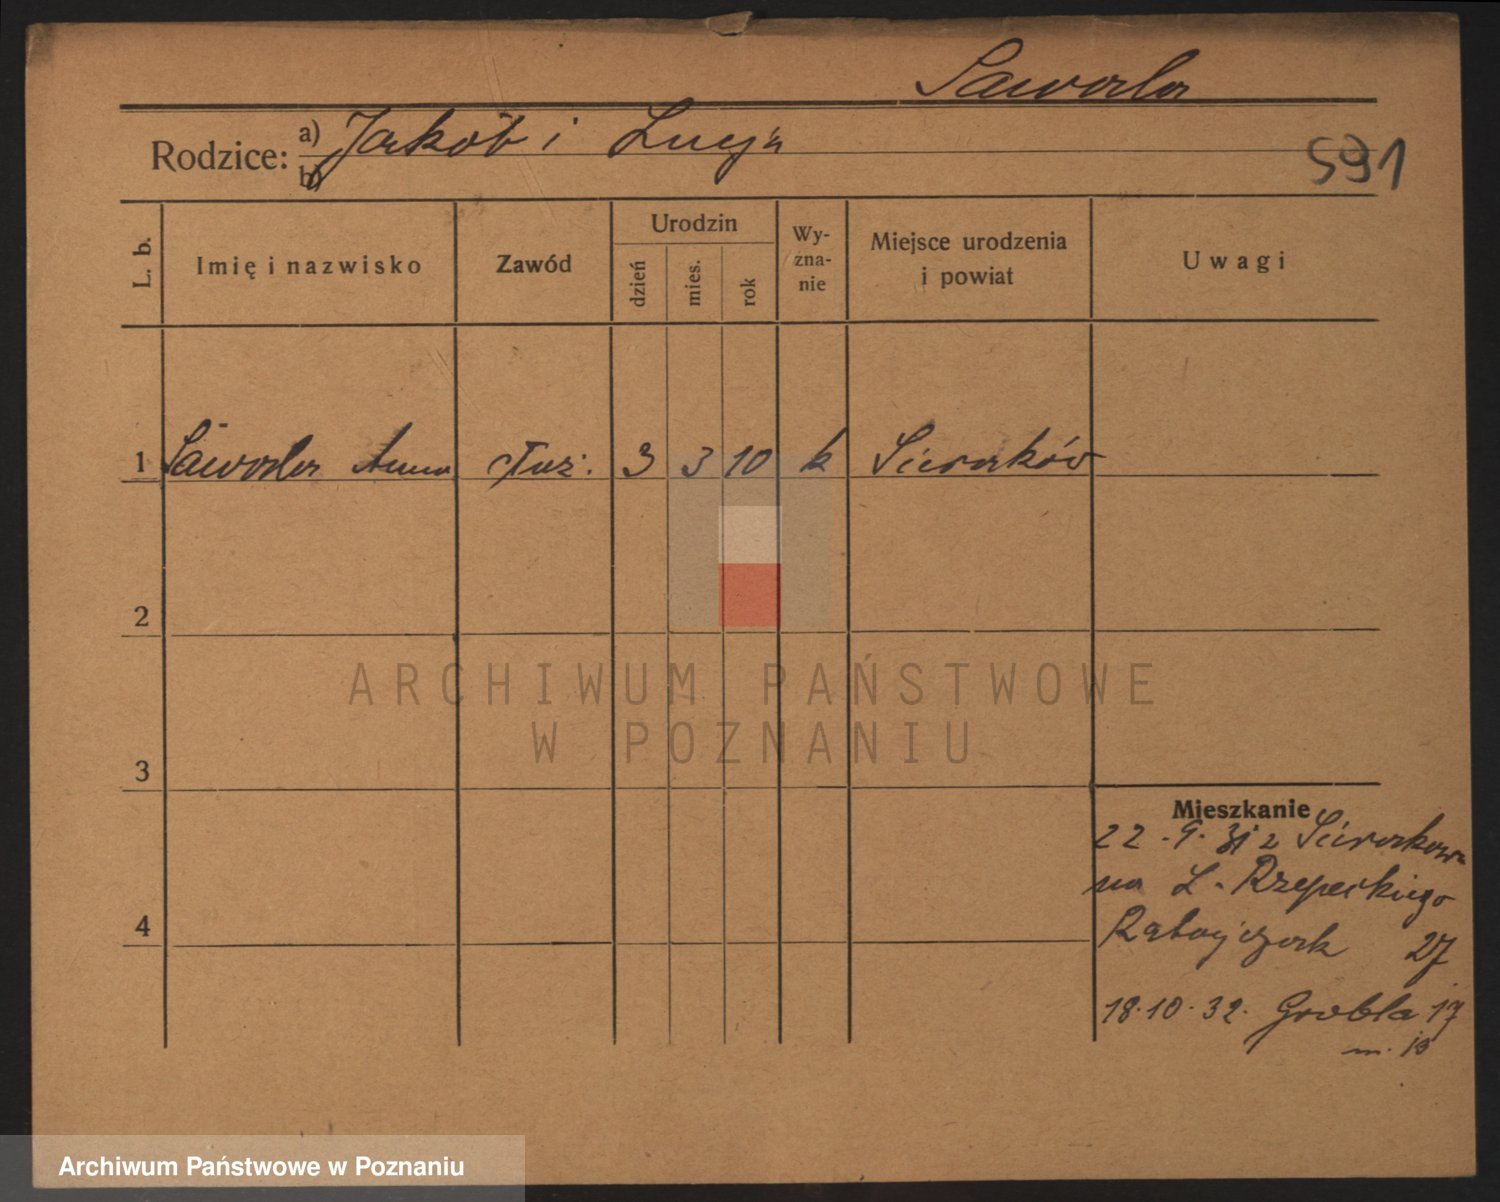 Saworla
Rodzice: a) Jakób i Lucja
b)
591
L. b.
Imię i nazwisko
Zawód
Urodzin
dzień
mies.
rok
Wy-
zna-
nie
Miejsce urodzenia
i powiat
Uwagi
1 Saworla Anna służ. 3 3 10 k Sieraków
2
3
4
Mieszkanie
22.9.31 z Sierakowa
na L. Rzepeckiego
Ratajczak 27
18.10.32. Grobla 17
m. 13
ARCHIWUM PAŃSTWOWE
W POZNANIU
Archiwum Państwowe w Poznaniu